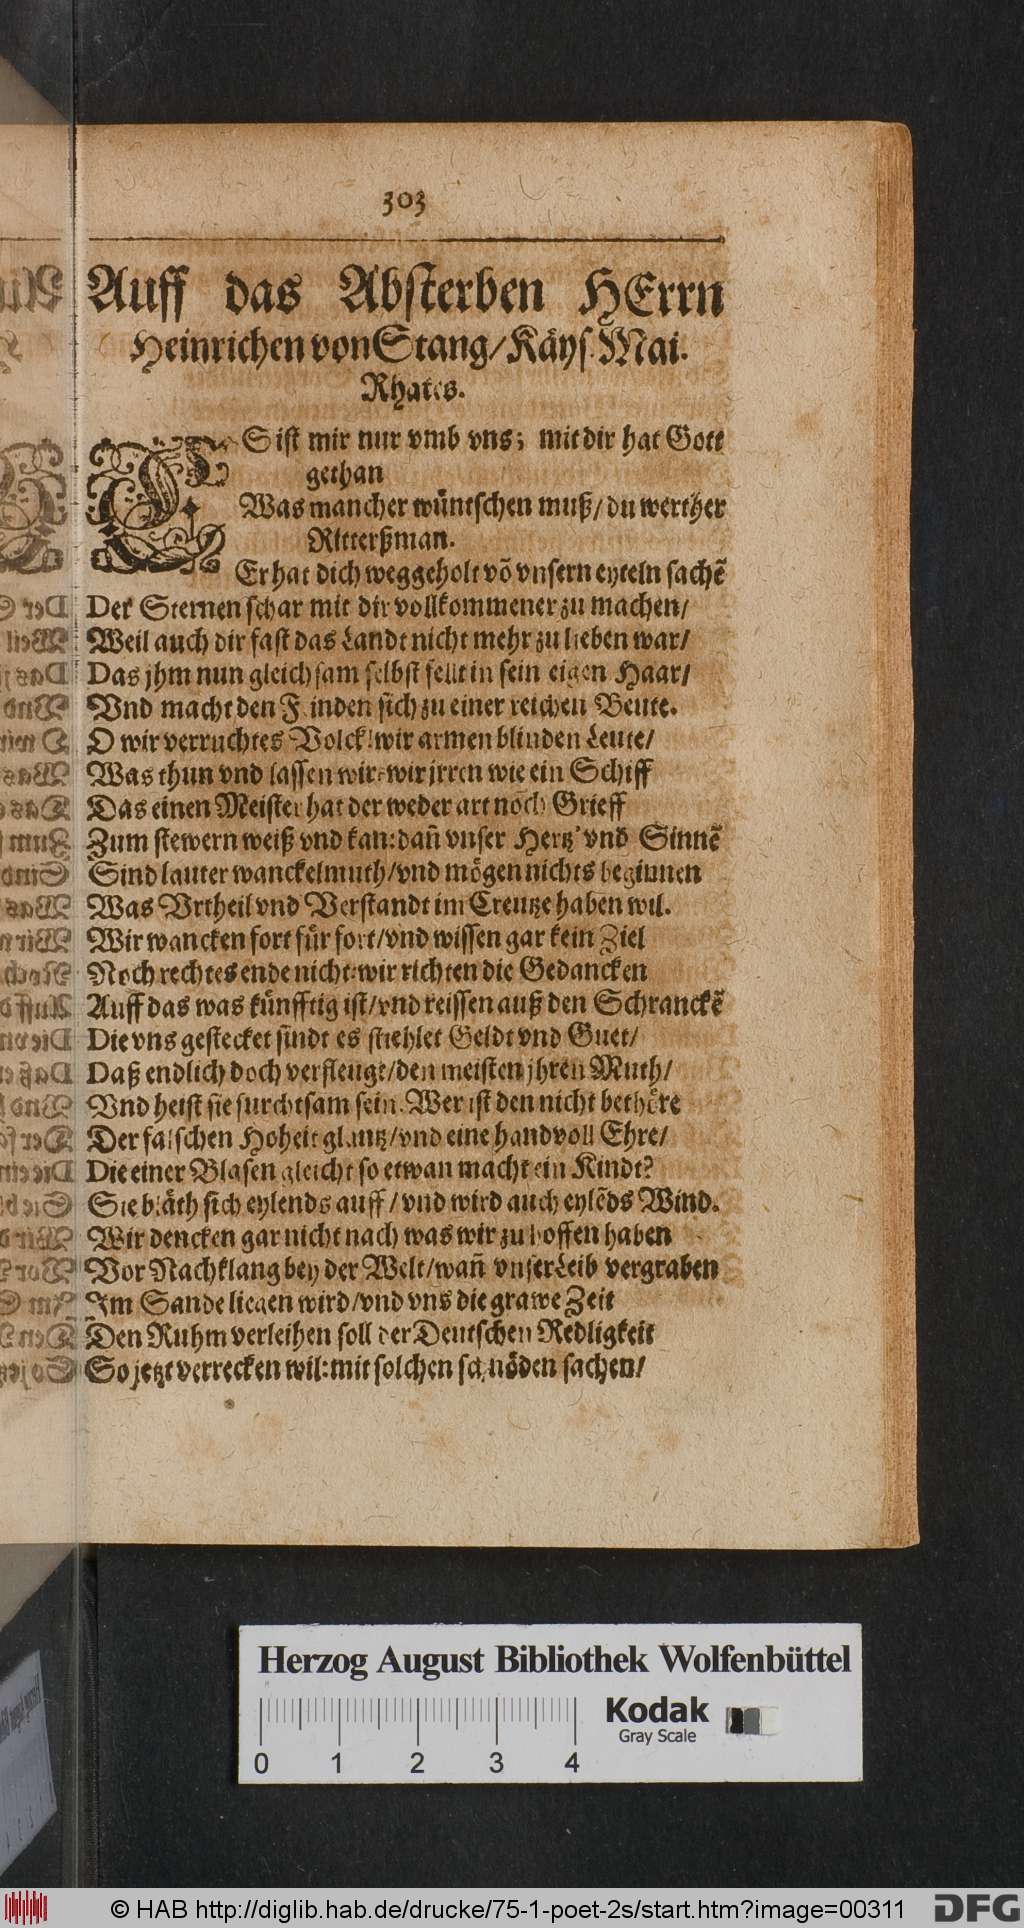 303
Auff das Absterben HErrn
Heinrichen von Stang/ Käys. Mai.
Rhates.
ES ist mir nur vmb vns; mit dir hat Gott
gethan
Was mancher wüntschen muß/ du werther
Ritterßman.
Er hat dich weggeholt võ vnsern eyteln sachẽ
Der Sternen schar mit dir vollkommener zu machen/
Weil auch dir fast das Landt nicht mehr zu lieben war/
Das jhm nun gleichsam selbst fellt in sein eigen Haar/
Vnd macht den Feinden sich zu einer reichen Beute.
O wir verruchtes Volck! wir armen blinden Leute/
Was thun vnd lassen wir? wir jrren wie ein Schiff
Das einen Meister hat der weder art noch Grieff
Zum stewern weiß vnd kan: dañ vnser Hertz' vnd Sinnẽ
Sind lauter wanckelmuth/ vnd mögen nichts beginnen
Was Vrtheil vnd Verstandt im Creutze haben wil.
Wir wancken fort für fort/ vnd wissen gar kein Ziel
Noch rechtes ende nicht: wir richten die Gedancken
Auff das was künfftig ist/ vnd reissen auß den Schranckẽ
Die vns gestecket sindt es stiehlet Geldt vnd Guet/
Daß endlich doch verfleugt/ den meisten jhren Muth/
Vnd heist sie furchtsam sein. Wer ist den nicht bethöre
Der falschen Hoheit glantz/ vnd eine handvoll Ehre/
Die einer Blasen gleicht so etwan macht ein Kindt?
Sie bläth sich eylends auff/ vnd wird auch eylẽds Wind.
Wir dencken gar nicht nach was wir zu hoffen haben
Vor Nachklang bey der Welt/ wañ vnser Leib vergraben
Im Sande liegen wird/ vnd vns die grawe Zeit
Den Ruhm verleihen soll der Deutschen Redligkeit
So jetzt verrecken wil: mit solchen schnöden sachen/
Herzog August Bibliothek Wolfenbüttel
Kodak
Gray Scale
0 1 2 3 4
© HAB http://diglib.hab.de/drucke/75-1-poet-2s/start.htm?image=00311
DFG